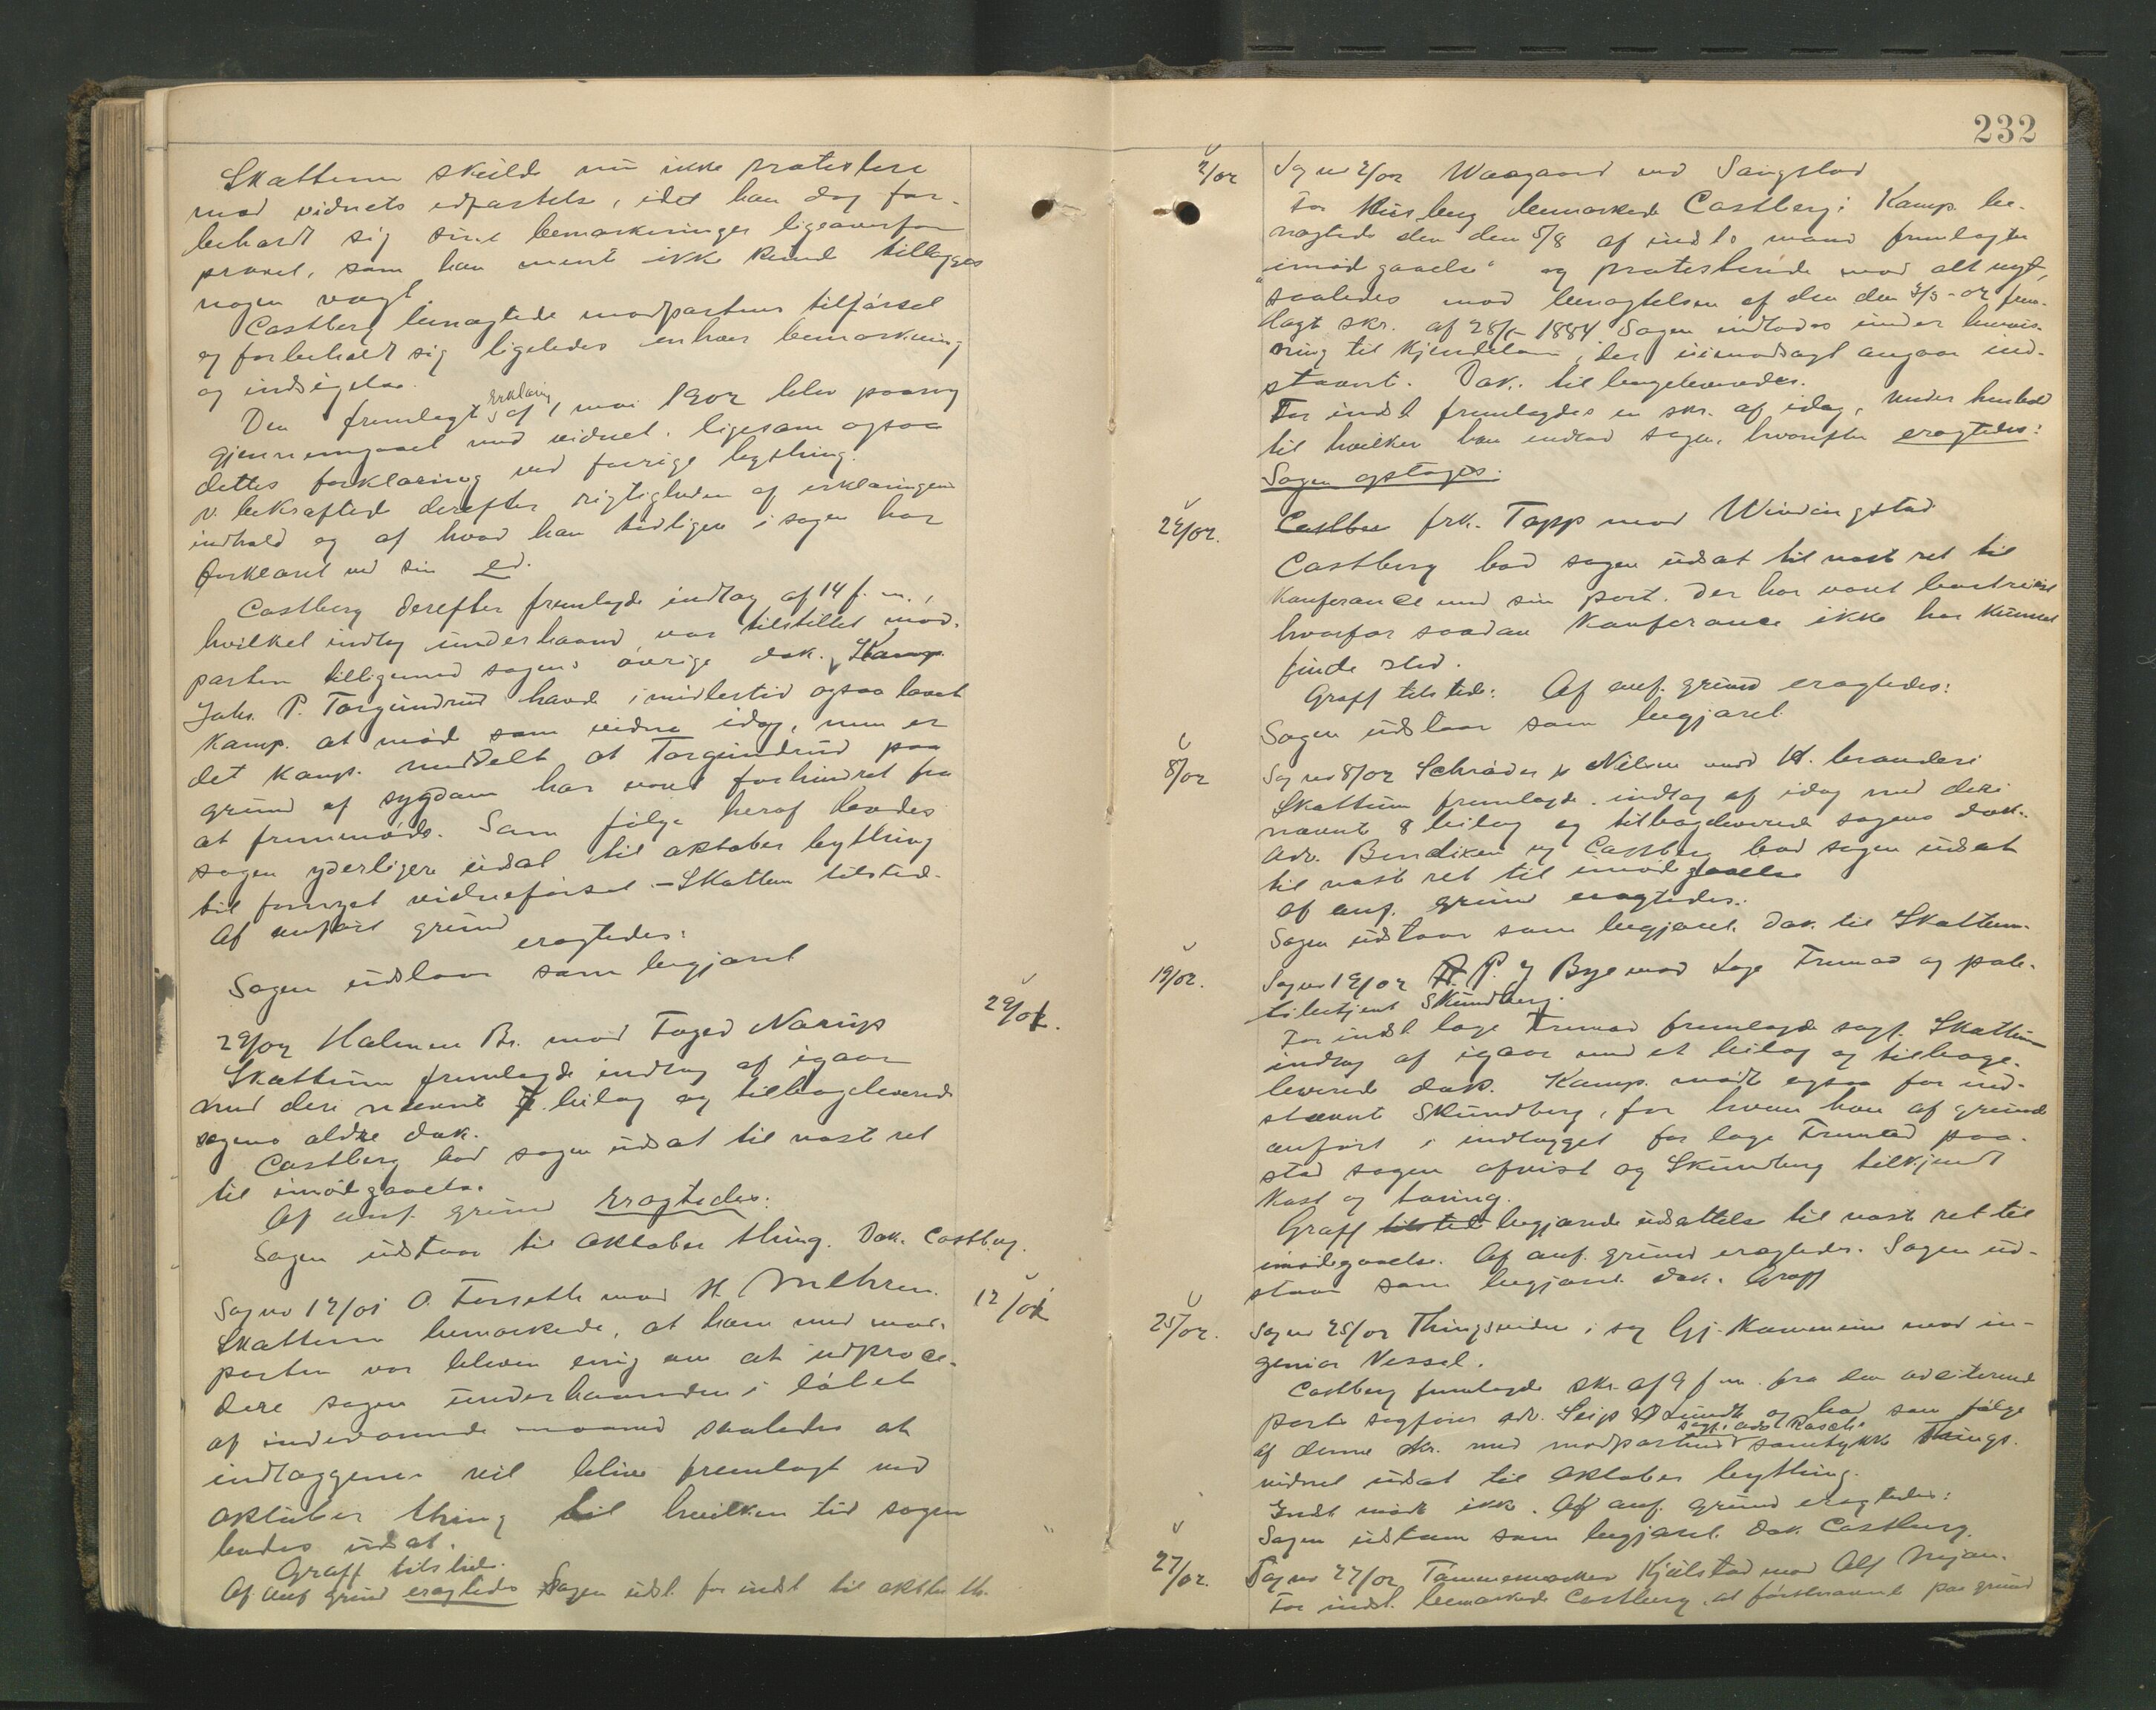 Skattum skulde nu ikke protestere
mod vidnets edfæstelse, idet han dog for-
beholdt sig sine bemærkninger ligeoverfor
provet, som han mente ikke kunde tillægges
nogen vægt.
Castberg benægtede modpartens tilførsel
og forbeholdt sig ligeledes enhver bemærkning
og indsigelse.
Den fremlagte erklæring af 1 mai 1902 blev paany
gjennemgaaet med vidnet, ligesom ogsaa
dettes forklaring ved forrige bygthing.
V. bekræftede derefter rigtigheden af erklæringens
indhold og af hvad han tidligere i sagen har
forklaret ved sin ed.
Castberg derefter fremlagde indlæg af 14 f. m.,
hvilket indlæg underhaand var tilstillet mod-
parten tilligemed sagens øvrige dok. Kamp.
Johs. P. Torgundrud havde imidlertid ogsaa lovet
Komp. at møde som vidne idag, men er
det Komp. meddelt at Torgundrud paa
grund af sygdom har været forhindret fra
at fremmøde. Som følge heraf bedes
sagen yderligere udsat til oktober bygthing
til fornyet vidneførsel. – Skattum tilstede.
Af anført grund
eragtedes:
Sagen udstaar som begjært
29/02.
29/02 Halmen Br. mod Foged Narup
Skattum fremlagde indlæg af igaar
med deri nævnt bilag og tilbageleverede
sagens ældre dok.
Castberg bad sagen udsat til næste ret
til imødegaaelse.
Af anf. grund eragtedes:
Sagen udstaar til oktober thing. Dok. Castberg.
12/01
Sag no 12/01 O. Forseth mod H. Mehren.
Skattum bemærkede, at ham med mod-
parten var bleven enig om at udproce-
dere sagen underhaanden i løbet
af indeværende maaned saaledes at
indlæggene vil blive fremlagt ved
oktober thing til hvilken tid sagen
bedes udsat.
Graff tilstede.
Af anf grund eragtedes Sagen udst. for indst til oktbr th.
232
2/02
Sag no 2/02 Waagaard mod Sangstad
For bemærkede Castberg: Komp. be-
nægtede den den 5/8 af indst's mand fremlagte
"imødegaaelse" og protesterede mod alt nyt,
saaledes mod benægtelsen af den den 3/3-02 frem-
lagt skr. af 28/ 1884. Sagen indlodes under henvis-
ning til kjendelsen, der uimodsagt angaar ind-
stævnt. Dok. tilbageleveredes.
For indst fremlagdes en skr. af idag, under henhold
til hvilken han indlod sagen, hvorefter eragtedes:
Sagen optages.
24/02.
Castbe frk. Tapp mod Windingstad
Castberg bad sagen udsat til næste ret til
Konferance med sin part. Der har været bortreist
hvorfor saadan Konferance ikke har kunnet
finde sted.
Graff tilstede: Af anf. grund eragtedes:
Sagen udstaar som begjært.
8/02
Sag no 8/02 Schrøder & Nilsen mod H. brænderi
Skattum fremlagde indlæg af idag med deri
nævnt 8 bilag og tilbageleverede sagens dok.
Adv. Bendixen og Castberg bad sagen udsat
til næste ret til imødegaaelse
Af anf. grund eragtedes:
Sagen udstaar som begjært. Dok. til Skattum.
19/02.
Sag no 19/02 A. P. Bye mod Loge Fremad og poli-
tibetjent Skundberg.
For indst loge Fremad fremlagde sagf. Skattum
indlæg af igaar med et bilag og tilbage-
leverede dok. Komp. mødte ogsaa for ind-
stævnt Skundberg, for hvem han af grunde
anført i indlægget for loge Fremad paa-
stod sagen afvist og Skundberg tilkjendt
Kost og tæring.
Graff tilstede begjærede udsættelse til næste ret til
imødegaaelse. Af anf. grund eragtedes. Sagen ud-
staar som begjært. Dok. Graff
25/02.
Sag no 25/02 Thingsvidne i sag Gj. Kommune mod in-
geniør Nessel.
Castberg fremlagde skr. af 9 f. m. fra den adciterende
parts sagfører adv. Seip & Lundh og bad som følge
af denne skr. med modpartens sagf. adv. Rasch's samtykke things-
vidnet udsat til oktober bygthing.
Indst mødte ikke. Af anf. grund eragtedes:
Sagen udstaar som begjært. Dok. Castberg.
27/02.
Sag no 27/02 Tømmermester Kjølstad mod Alf Mejan.
For indst. bemærkede Castberg, at førstnævnte paa grund